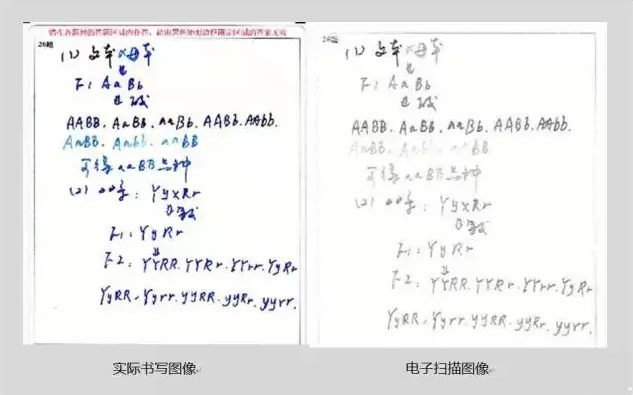 请在各题目的答题区域内作答，超出黑色矩形边框限定区域的答案无效
26题
(1) 父本 × 母本
↓
F1: AaBb
AABB. AaBB. aaBb. AABb. AAbb.
AaBB. Aabb. aaBB
可得 aaBB
(2) YyxRr
F1: YyRr
F2: YYRR. YYRr. YYrr. YyRr
YyRR. Yyrr. yyRR. yyRr. yyrr.
实际书写图像
26题
(1) 父本 × 母本
↓
F1: AaBb
AABB. AaBB. aaBb. AABb. AAbb.
AaBB. Aabb. aaBB
可得 aaBB
(2) YyxRr
F1: YyRr
F2: YYRR. YYRr. YYrr. YyRr
YyRR. Yyrr. yyRR. yyRr. yyrr.
电子扫描图像